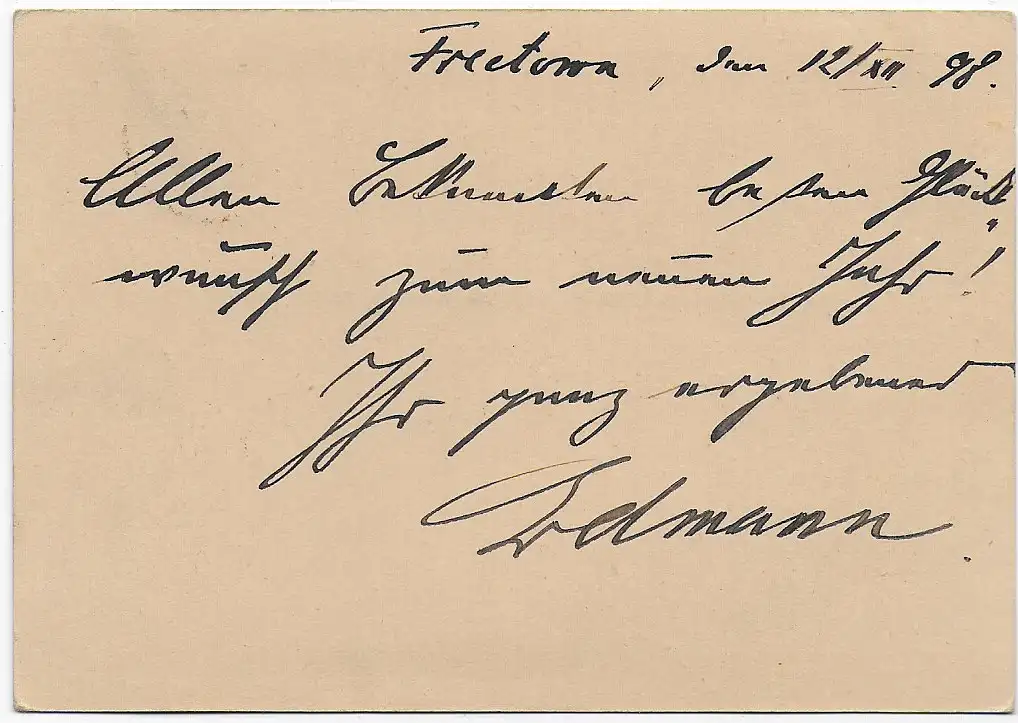 Freetown, den 12/XII. 98.
Allen Bekannten besten Glück-
wunsch zum neuen Jahr!
Ihr ganz ergebener